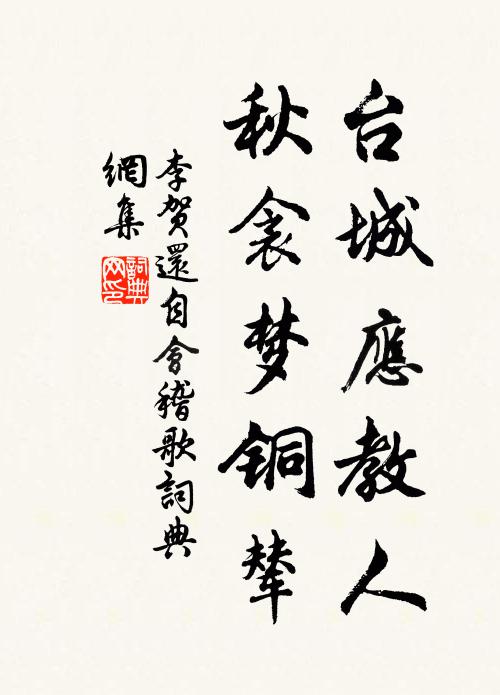 台城應教人
秋衾梦铜輦
李賀還自會稽歌詞典
網集
詞典
网印